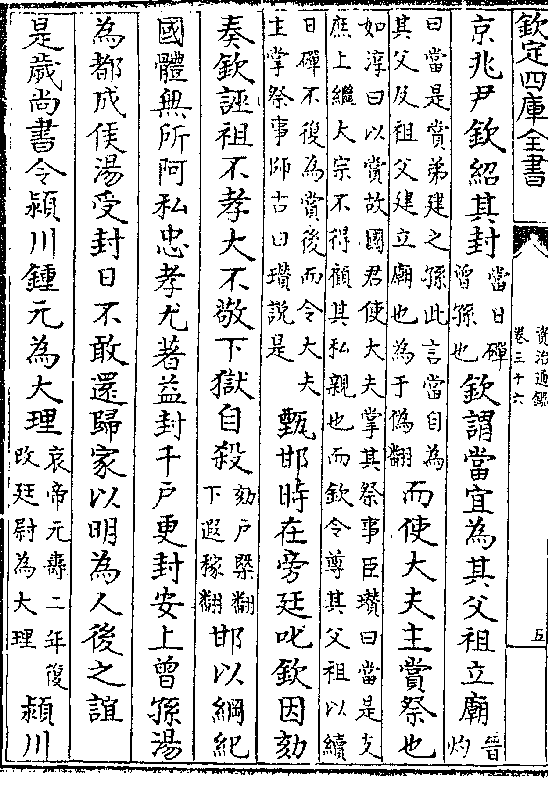 欽定四庫全書
資治通鑑
卷三十六
五
京兆尹欽紹其封當日磾曾孫也欽謂當宜為其父祖立廟晉灼
曰當是賞弟建之孫此言當自為
其父及祖父建立廟也為于偽翻
而使大夫主賞祭也
如淳曰以賞故國君使大夫掌其祭事臣瓚曰當是支
庶上繼大宗不得顧其私親也而欽令尊其父祖以續
日磾不復為賞後而令大夫
主掌祭事師古曰瓚說是
甄邯時在旁廷叱欽因劾
奏欽誣祖不孝大不敬下獄自殺劾戶槩翻下遐稼翻邯以綱紀
國體無所阿私忠孝尤著益封千戶更封安上曾孫湯
為都成侯湯受封日不敢還歸家以明為人後之誼
是歲尚書令潁川鍾元為大理哀帝元壽二年復改廷尉為大理潁川